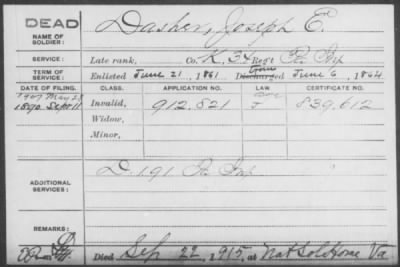 DEAD
NAME OF SOLDIER: Dasher, Joseph E.
SERVICE: Late rank, Co. K, 34 Reg't Pa Inf
TERM OF SERVICE: Enlisted June 21, 1861 Discharged June 6, 1864
DATE OF FILING. CLASS. APPLICATION NO. LAW CERTIFICATE NO.
1907 May 23
1890 Sept 11 Invalid, 912.821 839.612
Widow,
Minor,
ADDITIONAL SERVICES: D. 191 Pa Inf
REMARKS:
Died Sep 22, 1915, at Nat Sol Home Va